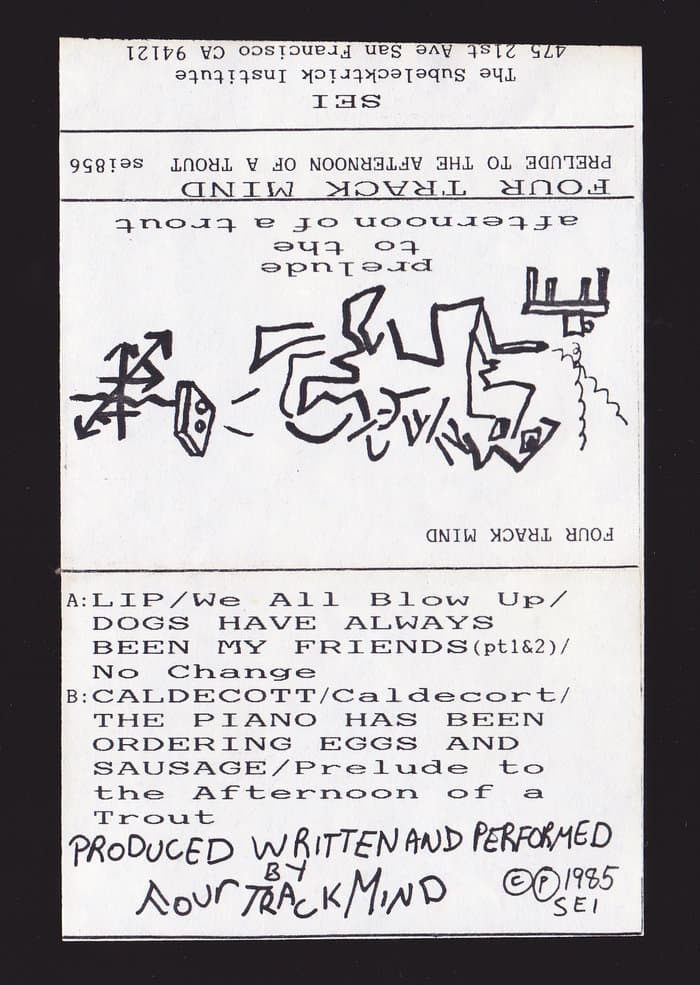 FOUR TRACK MIND
prelude
to the
afternoon of a trout
FOUR TRACK MIND
PRELUDE TO THE AFTERNOON OF A TROUT sei856
SEI
The Subelecktrick Institute
475 21st Ave San Francisco CA 94121
A:LIP/We All Blow Up/
DOGS HAVE ALWAYS
BEEN MY FRIENDS(pt1&2)/
No Change
B:CALDECOTT/Caldecort/
THE PIANO HAS BEEN
ORDERING EGGS AND
SAUSAGE/Prelude to
the Afternoon of a
Trout
PRODUCED WRITTEN AND PERFORMED
BY
four TRACK MIND
©℗1985
SEI